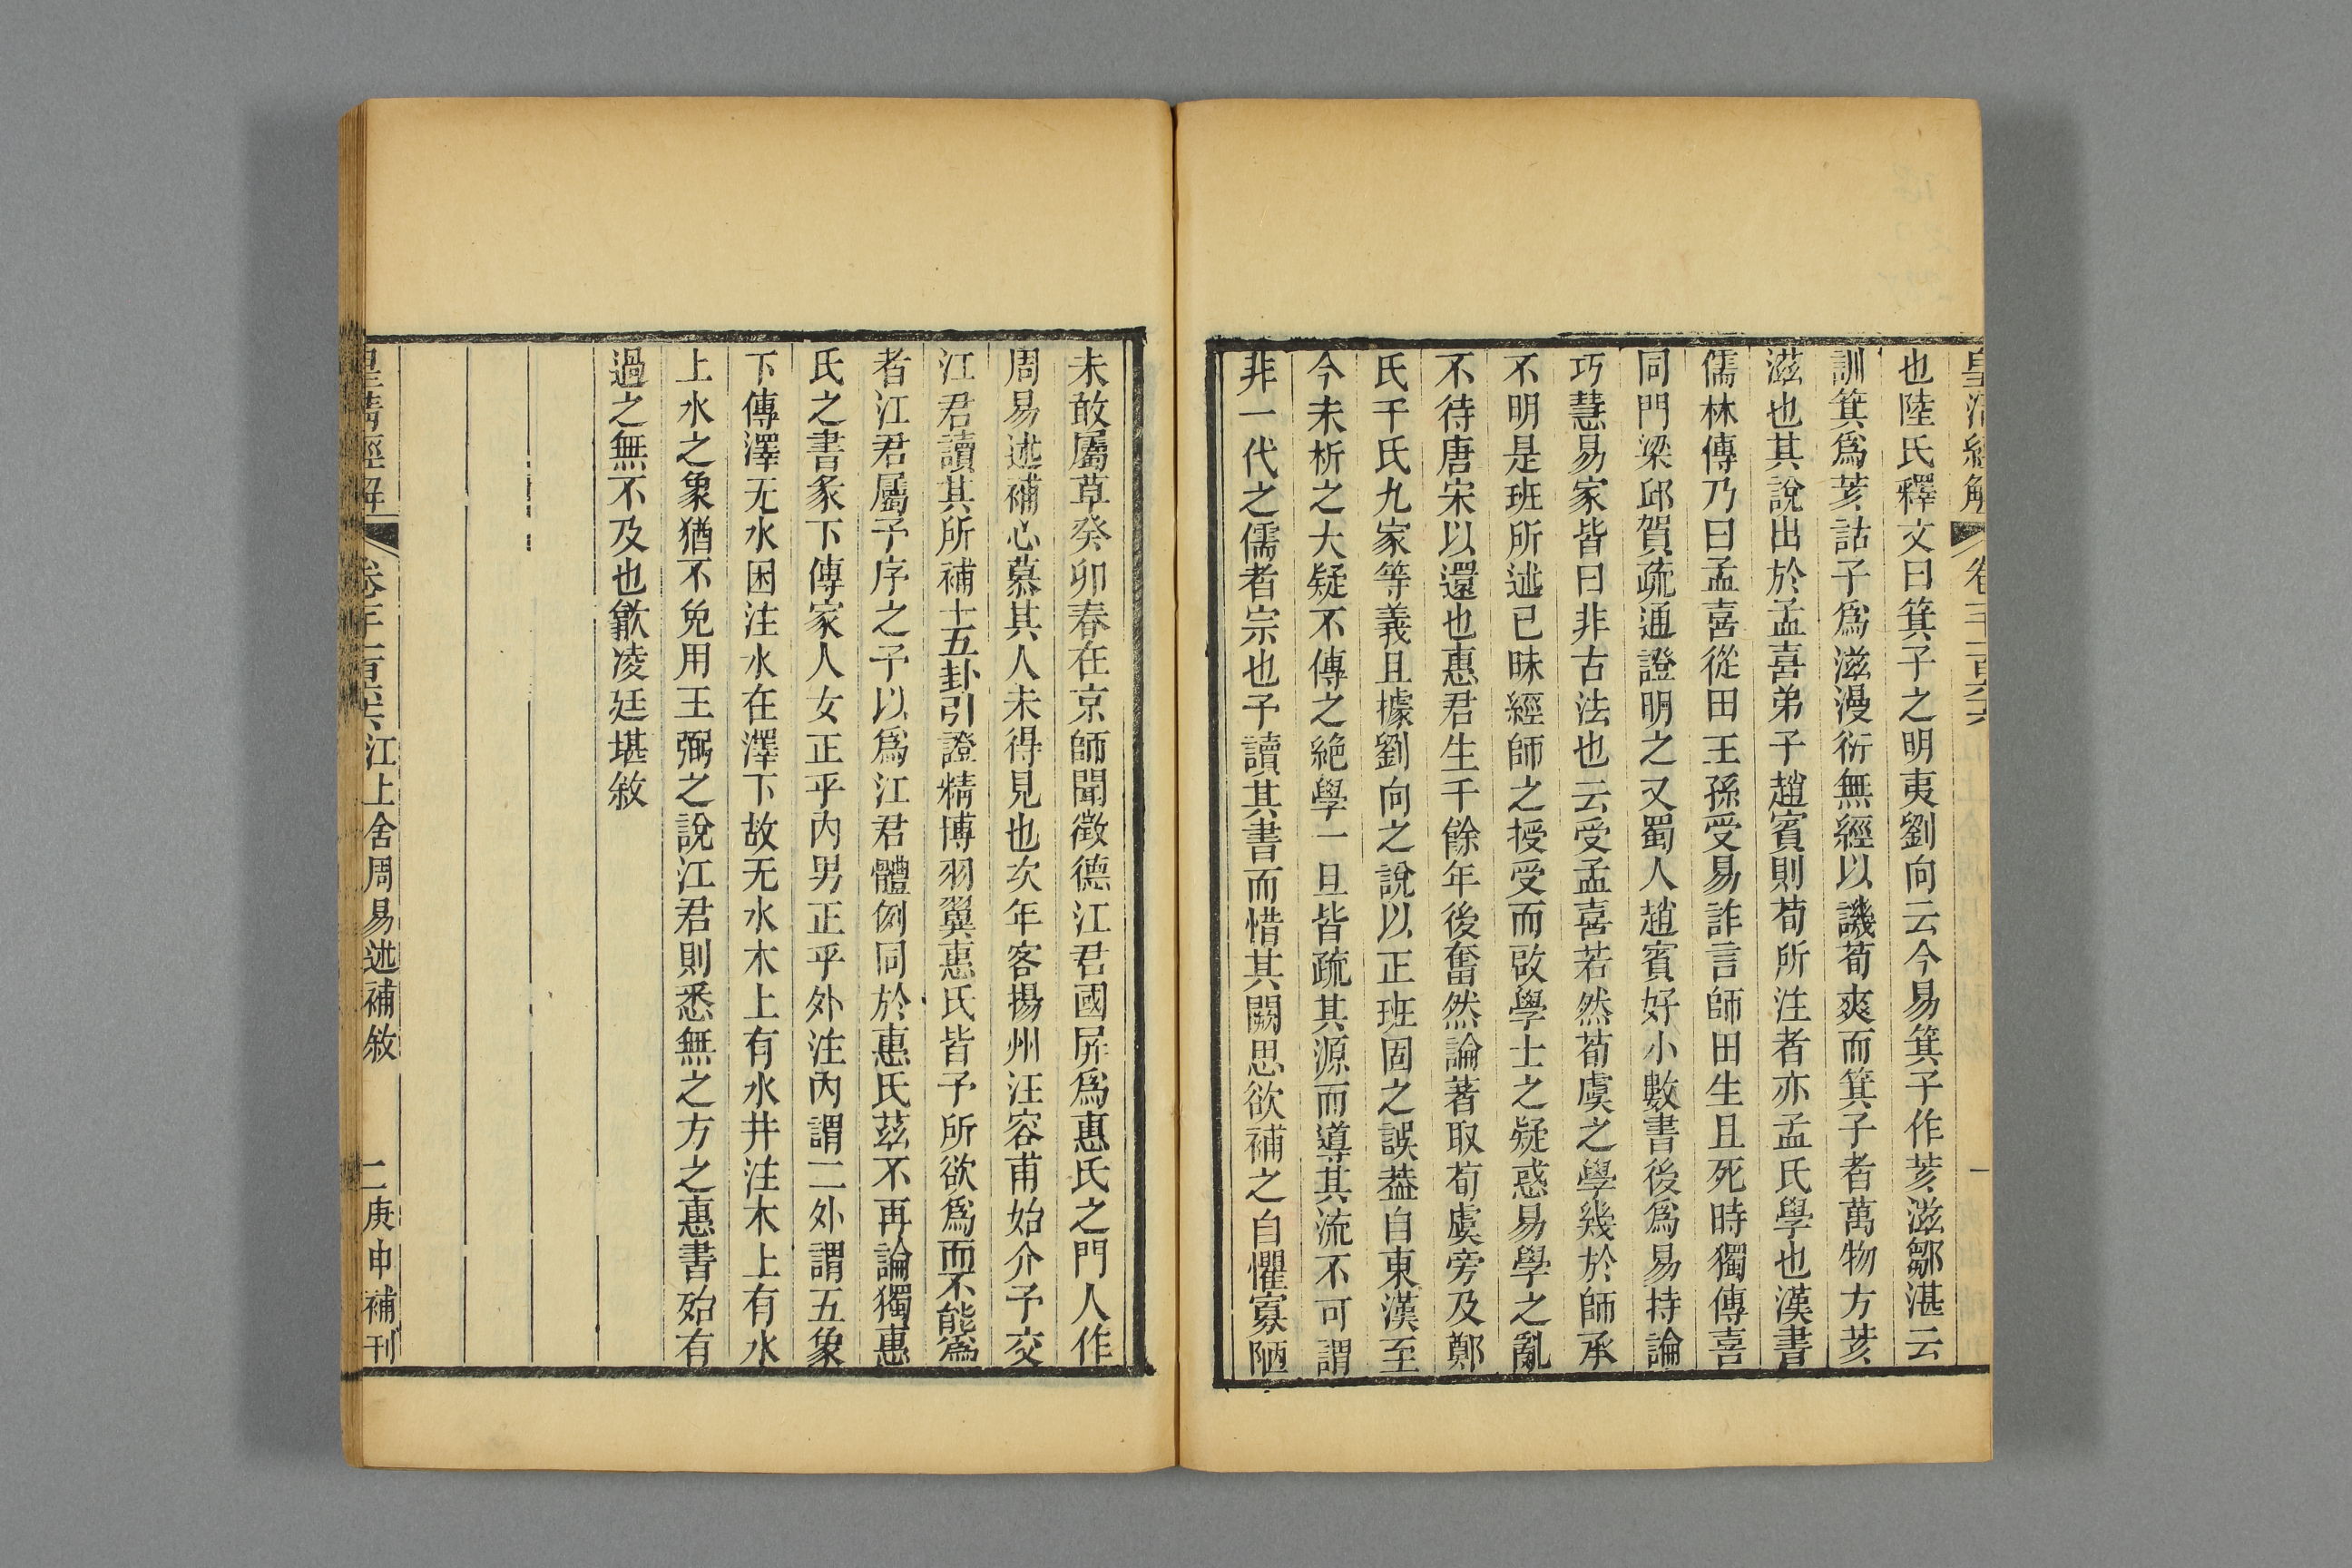 也陸氏釋文曰箕子之明夷劉向云今易箕子作荄滋鄒湛云
訓箕爲荄詁子爲滋漫衍無經以譏荀爽而箕子者萬物方荄
滋也其說出於孟喜弟子趙賓則荀所注者亦孟氏學也漢書
儒林傳乃曰孟喜從田王孫受易詐言師田生且死時獨傳喜
同門梁邱賀疏通證明之又蜀人趙賓好小數書後爲易持論
巧慧易家皆曰非古法也云受孟喜若然荀虞之學幾於師承
不明是班所述已昧經師之授受而啟學士之疑惑易學之亂
不待唐宋以還也惠君生千餘年後奮然論著取荀虞旁及鄭
氏干氏九家等義且據劉向之說以正班固之誤蓋自東漢至
今未析之大疑不傳之絶學一旦皆疏其源而導其流不可謂
非一代之儒者宗也予讀其書而惜其闕思欲補之自懼寡陋
未敢屬草癸卯春在京師聞徵德江君國屏爲惠氏之門人作
周易述補心慕其人未得見也次年客揚州汪容甫始介予交
江君讀其所補十五卦引證精博羽翼惠氏皆予所欲爲而不能爲
者江君屬予序之予以爲江君體例同於惠氏茲不再論獨惠
氏之書彖下傳家人女正乎內男正乎外注內謂二外謂五象
下傳澤无水困注水在澤下故无水木上有水井注木上有水
上水之象猶不免用王弼之說江君則悉無之方之惠書殆有
過之無不及也歙凌廷堪敘
皇清經解 江上舍周易述補敘 二 庚申補刊